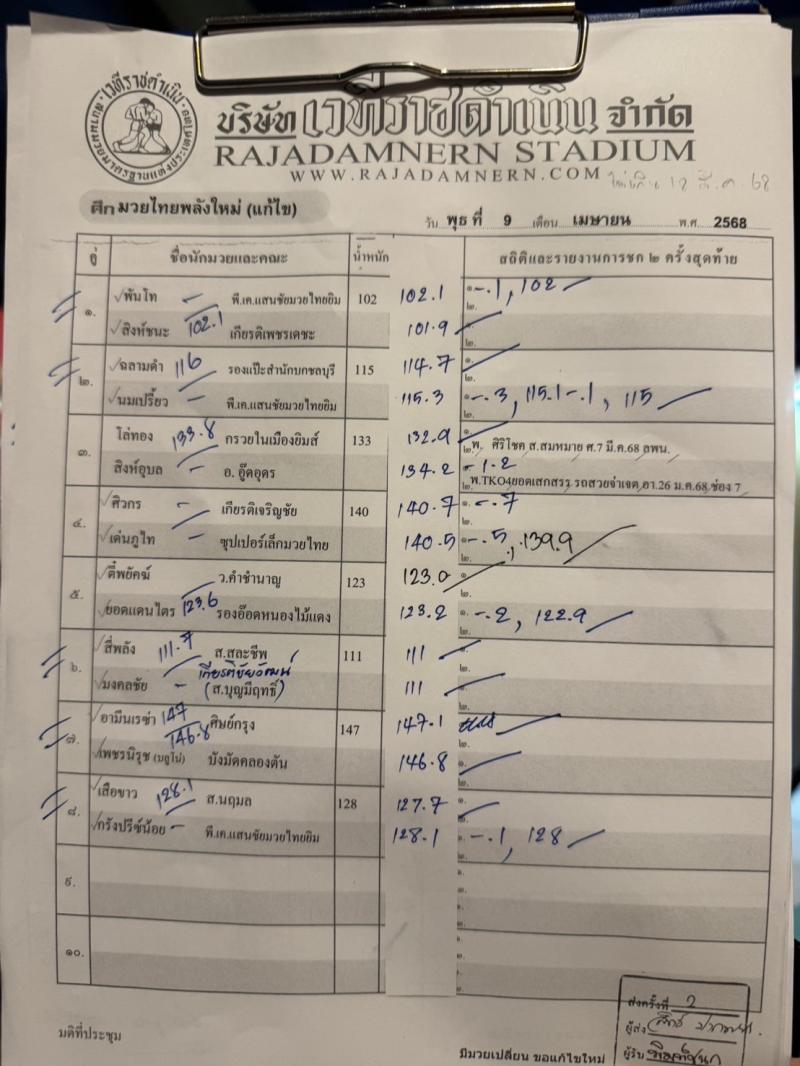 เวทีราชดำเนิน
สนามมวยมาตรฐานแห่งประเทศไทย
บริษัท เวทีราชดำเนิน จำกัด
RAJADAMNERN STADIUM
WWW.RAJADAMNERN.COM
ศึก มวยไทยพลังใหม่ (แก้ไข)
วัน พุธ ที่ 9 เดือน เมษายน พ.ศ. 2568
คู่ ชื่อนักมวยและคณะ น้ำหนัก สถิติและรายงานการชก ๒ ครั้งสุดท้าย
๑. พันโท - พี.เค.แสนชัยมวยไทยยิม 102 102.1 ๑. -.1, 102
๒.
สิงห์ชนะ 102.1 เกียรติเพชรเดชะ 101.9 ๑.
๒.
๒. ฉลามดำ 116 รองแป๊ะสำนักบกชลบุรี 115 114.7 ๑.
๒.
นมเปรี้ยว - พี.เค.แสนชัยมวยไทยยิม 115.3 ๑. -.3, 115.1 -.1, 115
๒.
๓. โล่ทอง 133.8 กรวยในเมืองยิมส์ 133 132.9 ๑.
๒.พ. ศิริโชค ส.สมหมาย ศ.7 มี.ค.68 ลพน.
สิงห์อุบล - อ. อู๊ดอุดร 134.2 -1.2
๒.พ.TKO4ยอดเสกสรร รถสวยจ่าเจต,อา.26 ม.ค.68 ช่อง 7
๔. ศิวกร - เกียรติเจริญชัย 140 140.7 ๑. -.7
๒.
เด่นภูไท - ซุปเปอร์เล็กมวยไทย 140.5 ๑. -.5, 139.9
๒.
๕. ตี๋พยัคฆ์ ว.คำชำนาญ 123 123.0 ๑.
๒.
ยอดแดนไตร 123.6 รองอ๊อดหนองไม้แดง 123.2 ๑. -.2, 122.9
๒.
๖. สี่พลัง 111.7 ส.สละชีพ 111 111 ๑.
๒.
เกียรติชัยวัฒน์
มงคลชัย - (ส.บุญมีฤทธิ์) 111 ๑.
๒.
๗. อามีนเรซ่า 147 ศิษย์กรุง 147 147.1
๒.
เพชรนิรุช (บลูโน่) 146.8 บังมัดคลองตัน 146.8 ๑.
๒.
๘. เสือขาว 128.1 ส.นฤมล 128 127.7 ๑.
๒.
กรังปรีซ์น้อย - พี.เค.แสนชัยมวยไทยยิม 128.1 ๑. -.1, 128
๒.
๙.
๑๐.
มติที่ประชุม
มีมวยเปลี่ยน ขอแก้ไขใหม่
ส่งครั้งที่ 2
ผู้ส่ง
ผู้รับ